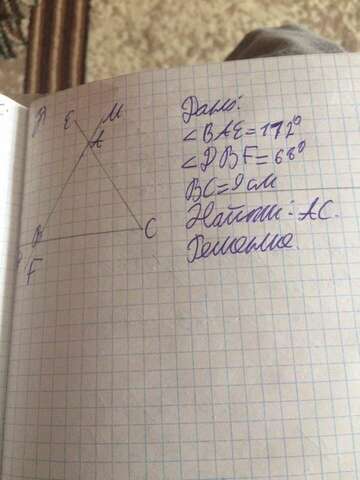 E M
A
Дано:
∠BAE=112°
∠DBF=68°
BC=9 см
Найти: AC.
Решение.
B
C
F